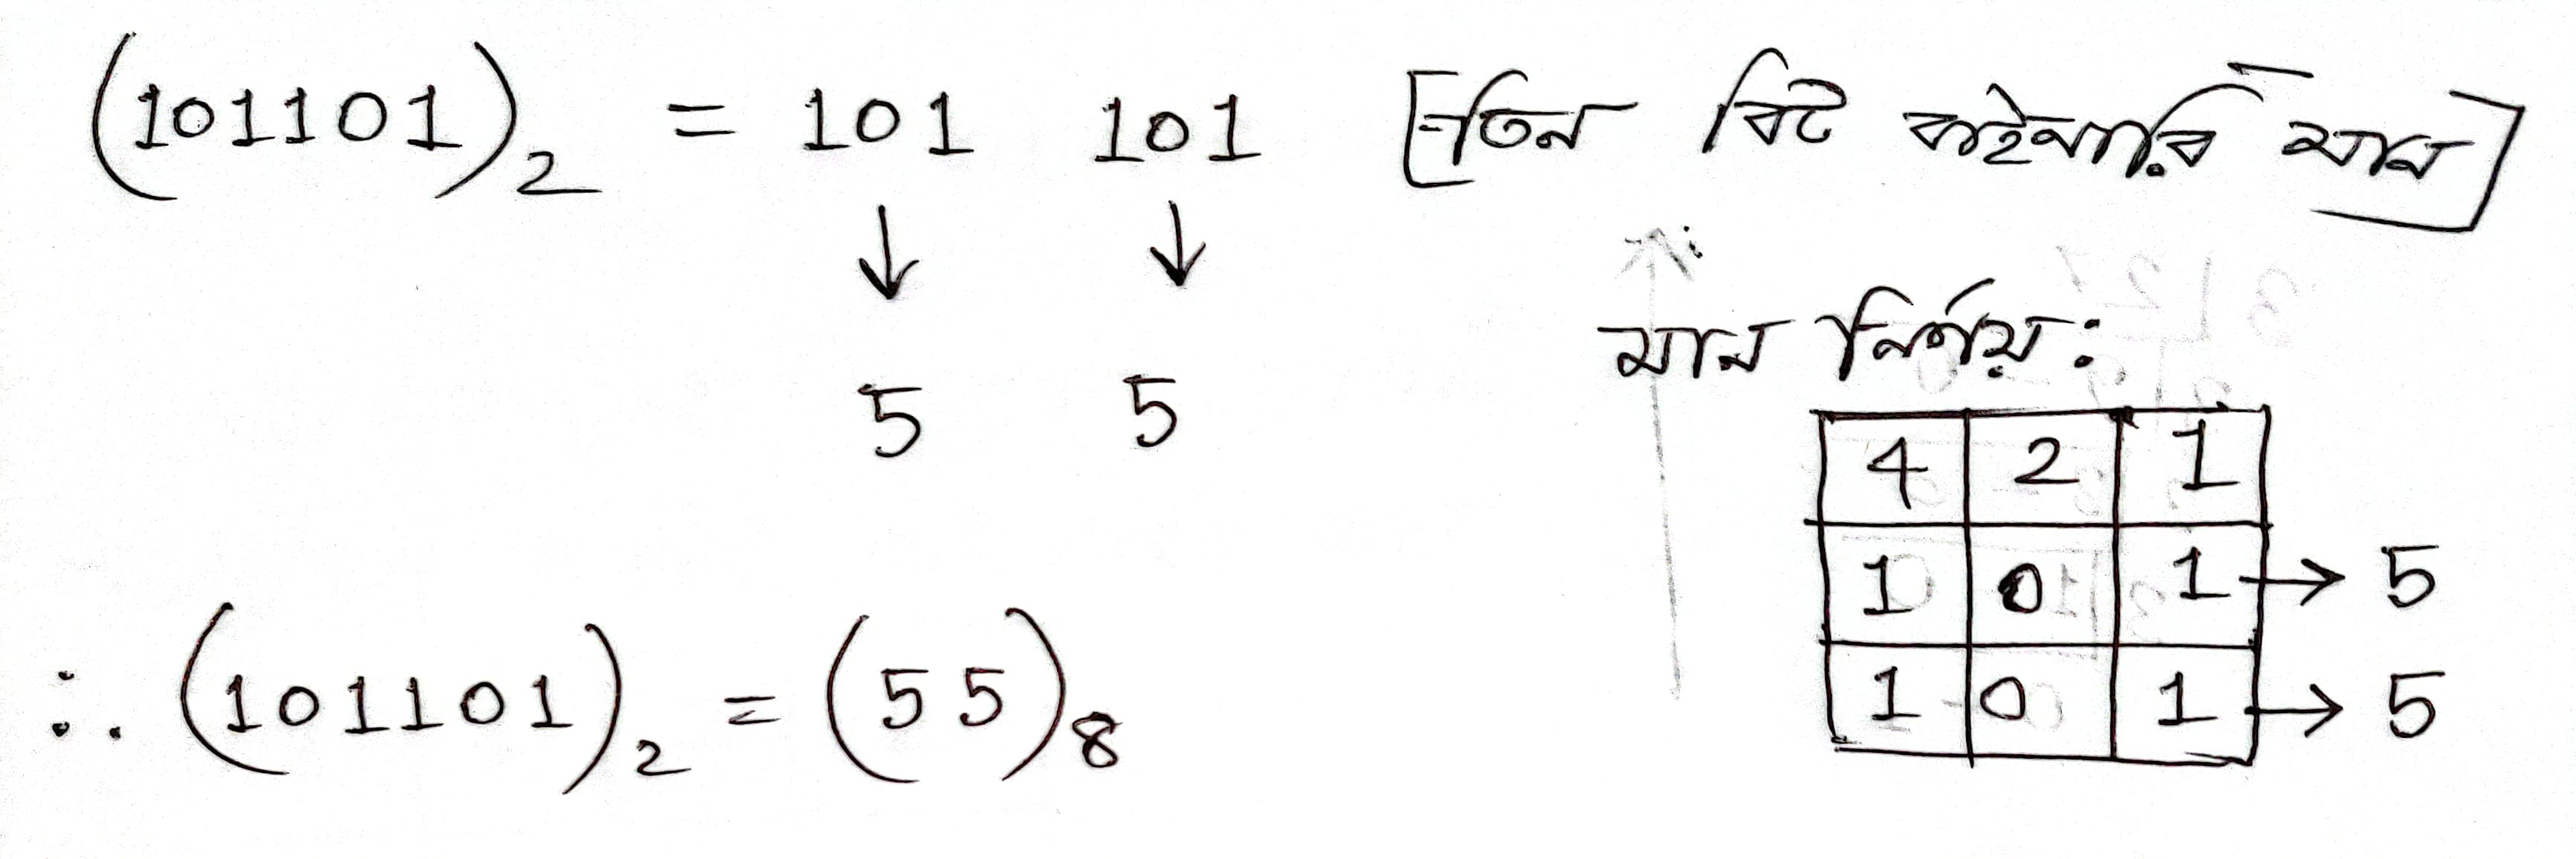 (101101)₂ = 101 101 [তিন বিট বাইনারি মান]
↓ ↓
5 5
মান নির্ণয়:
4 2 1
1 0 1 → 5
1 0 1 → 5
∴ (101101)₂ = (55)₈